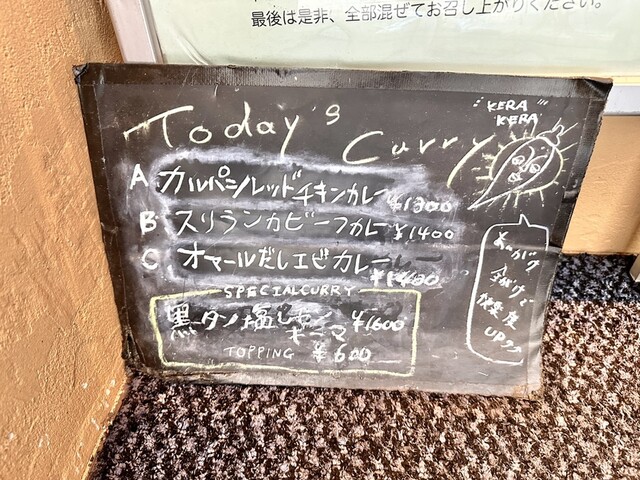 最後は是非、全部混ぜてお召し上がりください。
Today's Curry
"KERA KERA"
A カルパシ/レッドチキンカレー ¥1300
B スリランカビーフカレー ¥1400
C オマールだしエビカレー ¥1400
SPECIAL CURRY
黒タン塩しゃ キーマ ¥1600
TOPPING ¥600
UP